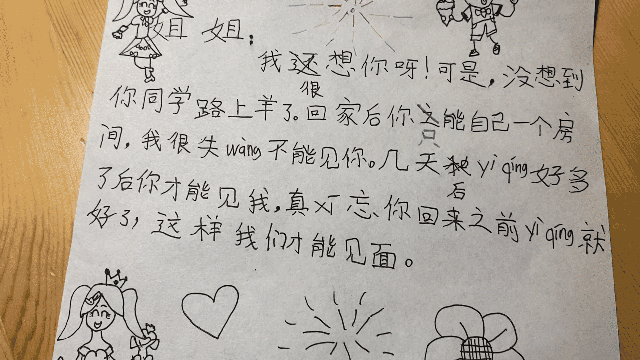 姐 姐:
我很想你呀!可是,没想到
你同学路上羊了。回家后你只能自己一个房
间,我很失wàng不能见你。几天后yì qíng好多
了后你才能见我,真xī忘你回来之前yì qíng就
好了,这样我们才能见面。